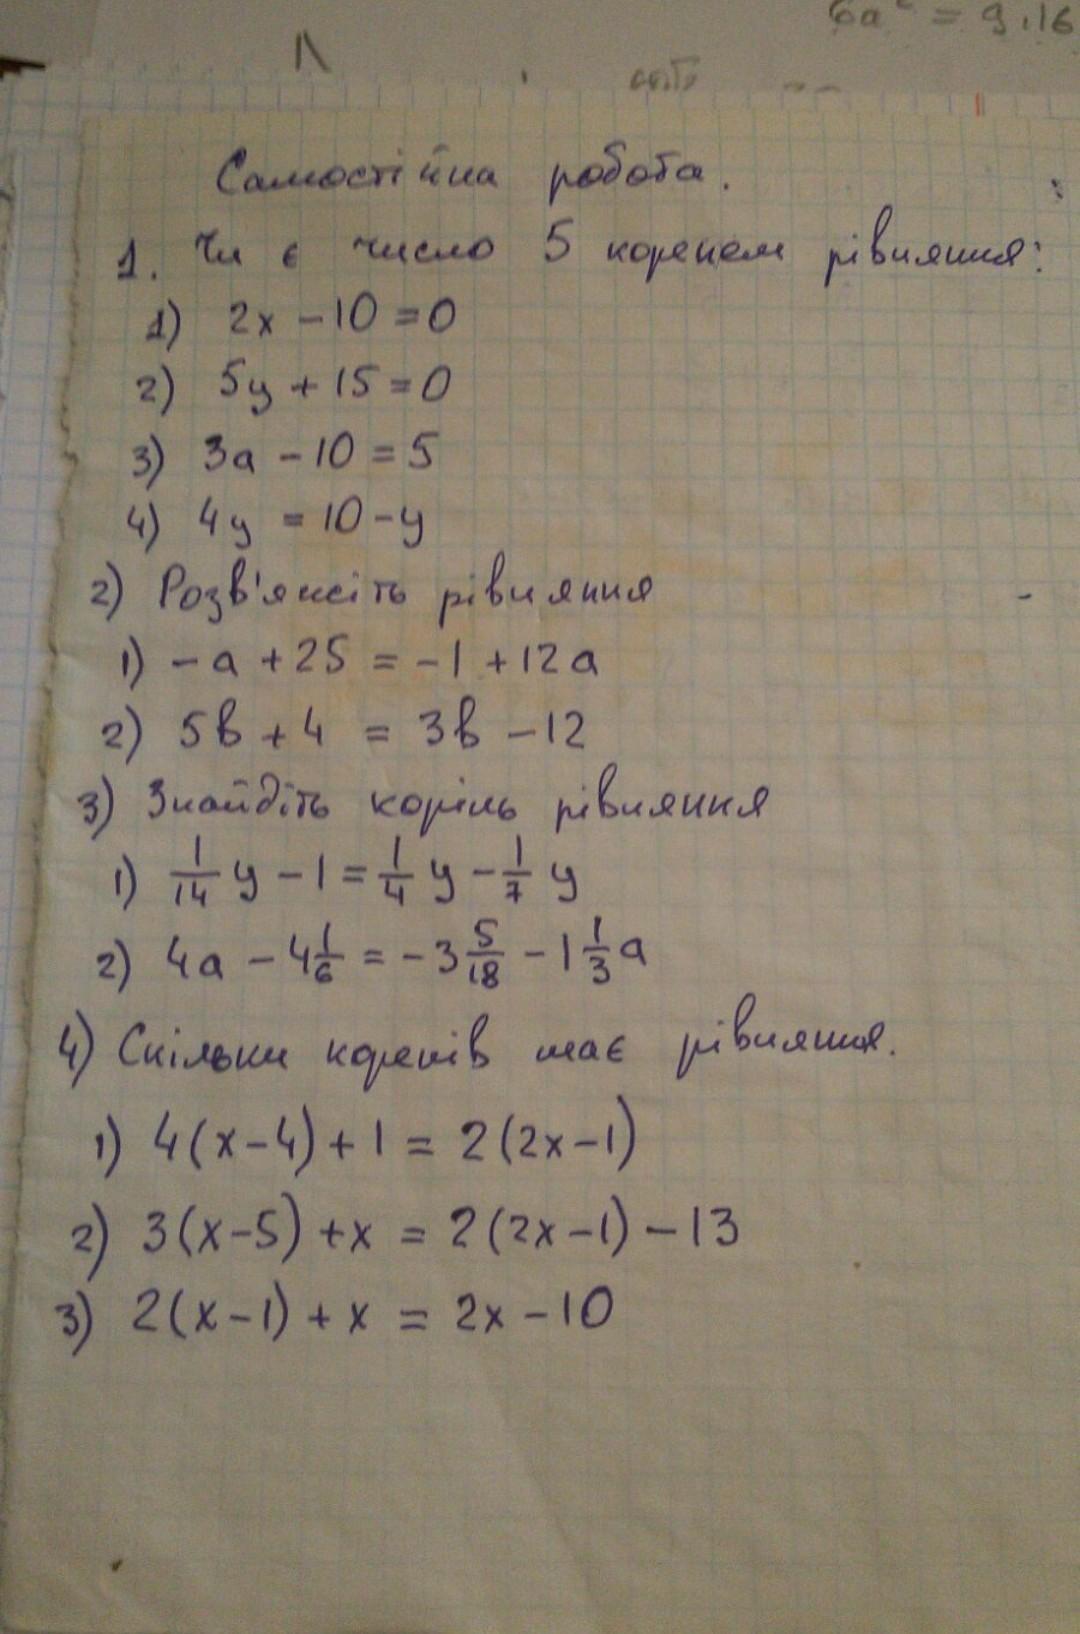 6a² = 9.16
Самостійна робота.
1. Чи є число 5 коренем рівняння:
1) 2x - 10 = 0
2) 5y + 15 = 0
3) 3a - 10 = 5
4) 4y = 10 - y
2) Розв'яжіть рівняння
1) - a + 25 = - 1 + 12a
2) 5b + 4 = 3b - 12
3) Знайдіть корінь рівняння
1) 1/14 y - 1 = 1/4 y - 1/7 y
2) 4a - 4 1/6 = - 3 5/18 - 1 1/3 a
4) Скільки коренів має рівняння.
1) 4(x - 4) + 1 = 2(2x - 1)
2) 3(x - 5) + x = 2(2x - 1) - 13
3) 2(x - 1) + x = 2x - 10